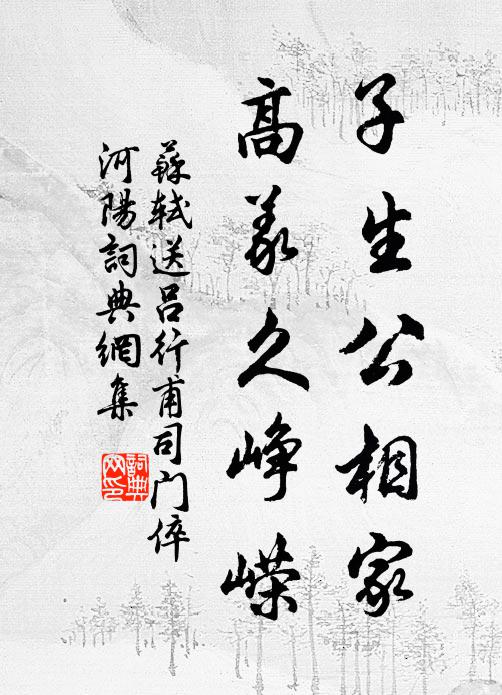 子生公相家
高義久崢嶸
蘇軾送呂行甫司門倅
河陽詞典網集
詞典
网印